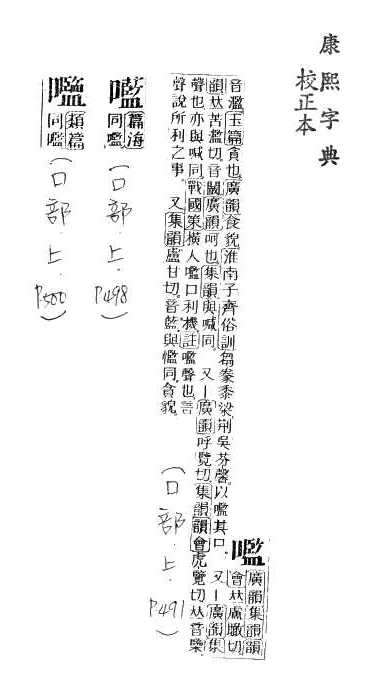 康熙字典
校正本
嚂
廣韻集韻韻
會𠀤盧瞰切
音濫玉篇貪也廣韻食貌淮南子齊俗訓芻豢黍梁荆吳芬馨以嚂其口 又丨廣韻集
韻𠀤苦濫切音闞廣韻呵也集韻與喊同 又丨廣韻呼覽切集韻韻會虎覽切𠀤音
聲也亦與喊同戰國策橫人嚂口利機註嚂聲也言
聲說所利之事 又集韻盧甘切音藍與懢同貪貌
(口部.上.P491)
篇海
同嚂
(口部.上.P498)
類篇
同嚂
(口部.上.P500)